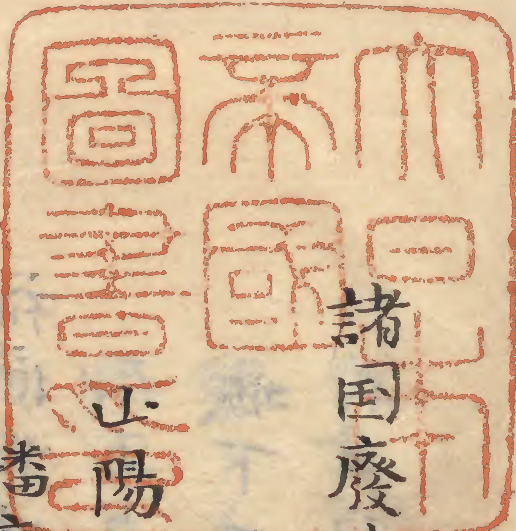 大日本
帝國
圖書印
諸国廢
山陽
番